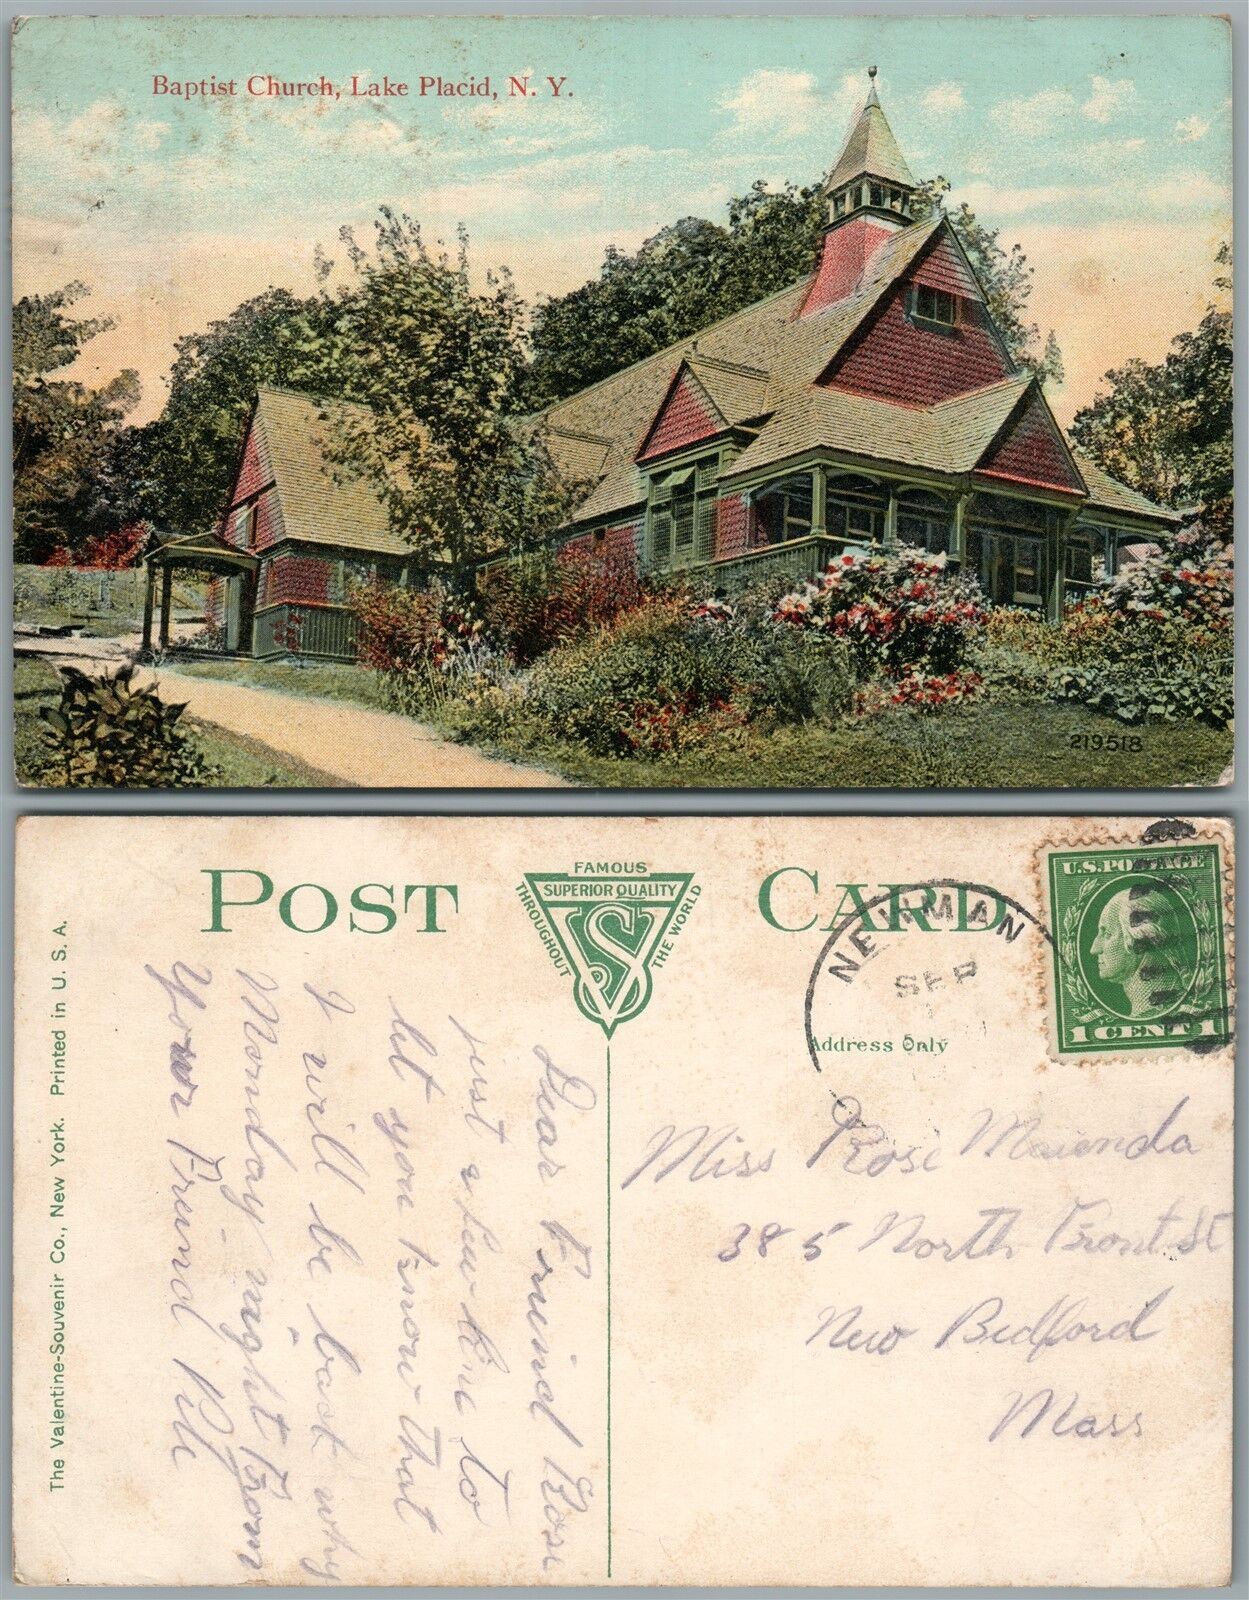 Baptist Church, Lake Placid, N. Y.
219518
POST CARD
FAMOUS
SUPERIOR QUALITY
THROUGHOUT
THE WORLD
VS
The Valentine-Souvenir Co., New York. Printed in U. S. A.
NEWMAN
N. Y.
SEP
Address Only
U.S. POSTAGE
1 CENT 1
Dear Friend Rose
just a few line to
let you know that
I will be back
Monday night From
Your Friend
Miss Rose
385 North Front St
New Bedford
Mass